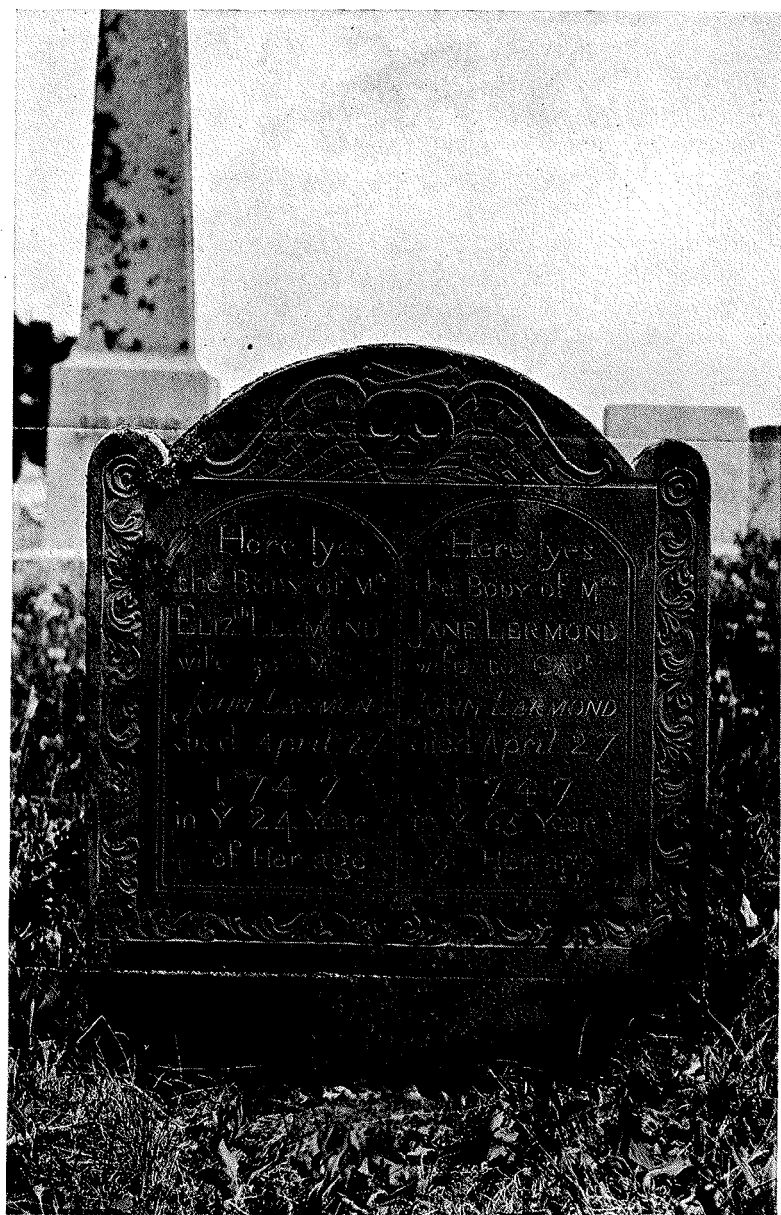 Here lyes
the BODY of Mrs
ELIZth LERMOND
wife to Mr
JOHN LERMOND
died April 27
1747
in Ye 24 Year
of Her age
Here lyes
the BODY of Mrs
JANE LERMOND
wife to CAPt
JOHN LERMOND
died April 27
1747
in Ye Year
of Her age